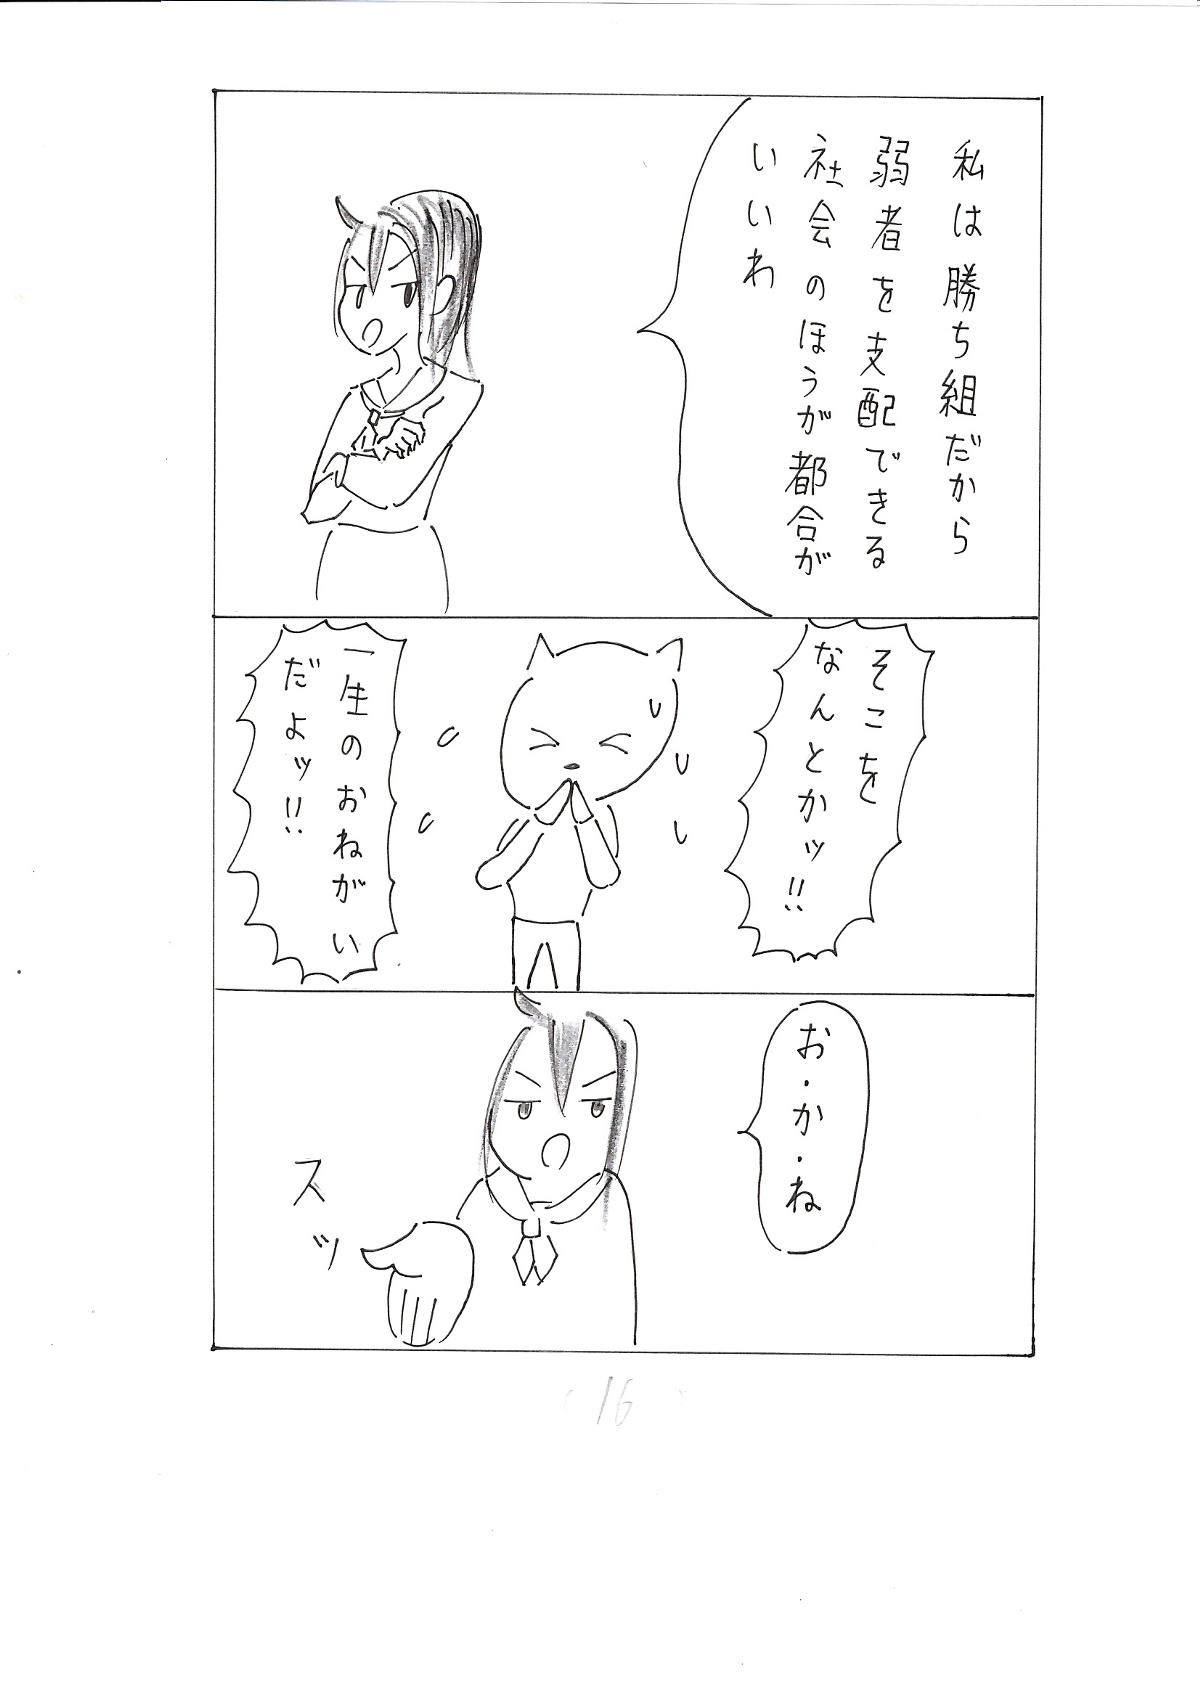 私は勝ち組だから
弱者を支配できる
社会のほうが都合が
いいわ
そこを
なんとかッ!!
一生のおねがい
だよッ!!
お・か・ね
スッ
(16)